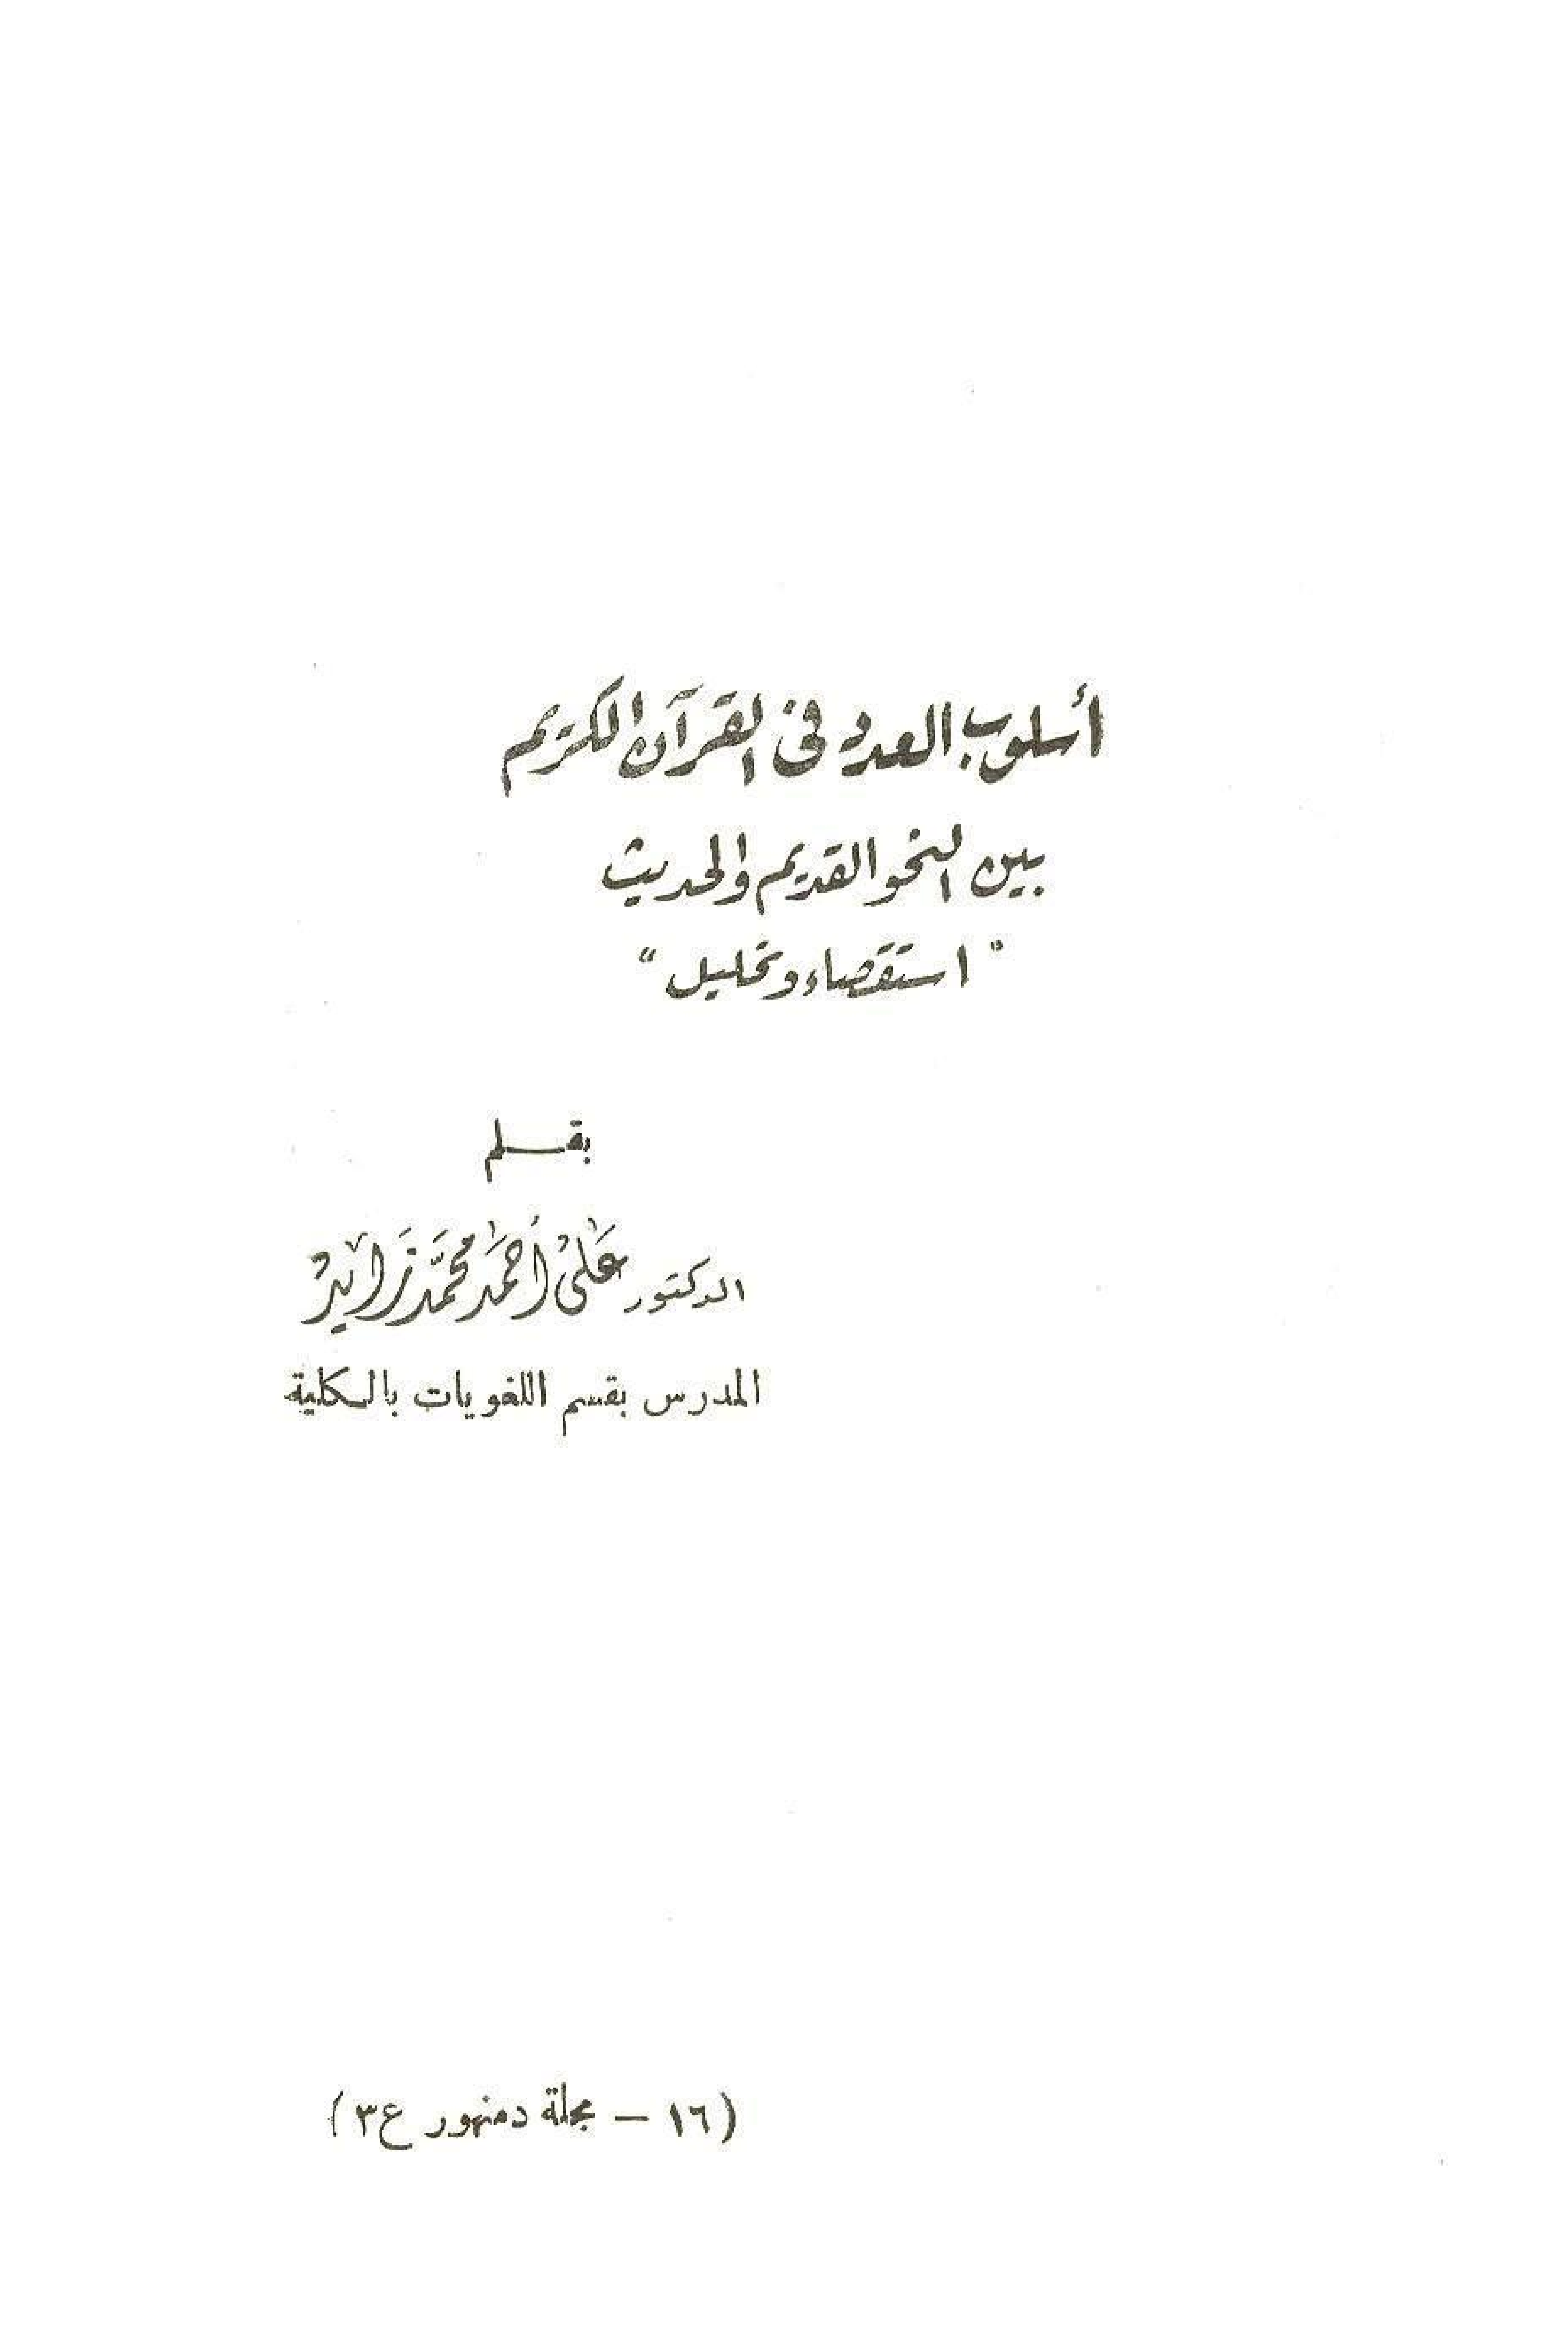 أسلوب العدد فى القرآن الكريم
بين النحو القديم والحديث
"استقصاء وتحليل"
بقـــلم
الدكتور عَلى أحمَد محمَّد زَايد
المدرس بقسم اللغويات بالـكلية
(١٦ – مجلة دمنهور ع٣)